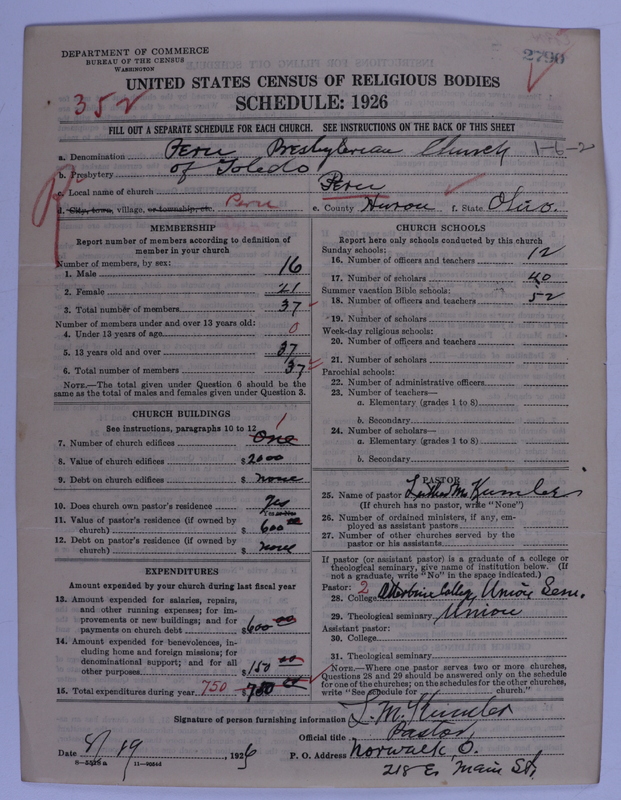 2790
DEPARTMENT OF COMMERCE
BUREAU OF THE CENSUS
WASHINGTON
UNITED STATES CENSUS OF RELIGIOUS BODIES
SCHEDULE: 1926
352
FILL OUT A SEPARATE SCHEDULE FOR EACH CHURCH. SEE INSTRUCTIONS ON THE BACK OF THIS SHEET
a. Denomination Peru Presbyterian Church 1-6-2
b. Presbytery of Toledo
c. Local name of church Peru
d. City, town, village, or township, etc. Peru e. County Huron f. State Ohio.
MEMBERSHIP
Report number of members according to definition of
member in your church
Number of members, by sex:
1. Male 16
2. Female 21
3. Total number of members 37
Number of members under and over 13 years old:
4. Under 13 years of age 0
5. 13 years old and over 37
6. Total number of members 37
NOTE.—The total given under Question 6 should be the
same as the total of males and females given under Question 3.
CHURCH BUILDINGS
See instructions, paragraphs 10 to 12
7. Number of church edifices One 1
8. Value of church edifices $2000
9. Debt on church edifices $ none
10. Does church own pastor's residence Yes
Yes or No
11. Value of pastor's residence (if owned by
church) $ 600 00
12. Debt on pastor's residence (if owned by
church) $ none
EXPENDITURES
Amount expended by your church during last fiscal year
13. Amount expended for salaries, repairs,
and other running expenses; for im-
provements or new buildings; and for
payments on church debt $600 00
14. Amount expended for benevolences, in-
cluding home and foreign missions; for
denominational support; and for all
other purposes $150 00
15. Total expenditures during year 750 $750 00
CHURCH SCHOOLS
Report here only schools conducted by this church
Sunday schools:
16. Number of officers and teachers 12
17. Number of scholars 40
Summer vacation Bible schools:
18. Number of officers and teachers 52
19. Number of scholars
Week-day religious schools:
20. Number of officers and teachers
21. Number of scholars
Parochial schools:
22. Number of administrative officers
23. Number of teachers—
a. Elementary (grades 1 to 8)
b. Secondary
24. Number of scholars—
a. Elementary (grades 1 to 8)
b. Secondary
PASTOR
25. Name of pastor Luther M. Kumler
(If church has no pastor, write "None")
26. Number of ordained ministers, if any, em-
ployed as assistant pastors
27. Number of other churches served by the
pastor or his assistants
If pastor (or assistant pastor) is a graduate of a college or
theological seminary, give name of institution below. (If
not a graduate, write "No" in the space indicated.)
Pastor: 2
28. College Otterbein College, Union Sem.
29. Theological seminary Union
Assistant pastor:
30. College
31. Theological seminary
NOTE.—Where one pastor serves two or more churches,
Questions 28 and 29 should be answered only on the schedule
for one of the churches; on the schedules for the other churches,
write "See schedule for church."
Signature of person furnishing information L. M. Kumler
Official title Pastor
Date 8/19, 1926 P. O. Address Norwalk, O.
218 E. Main St.
8—5528a 11—90544